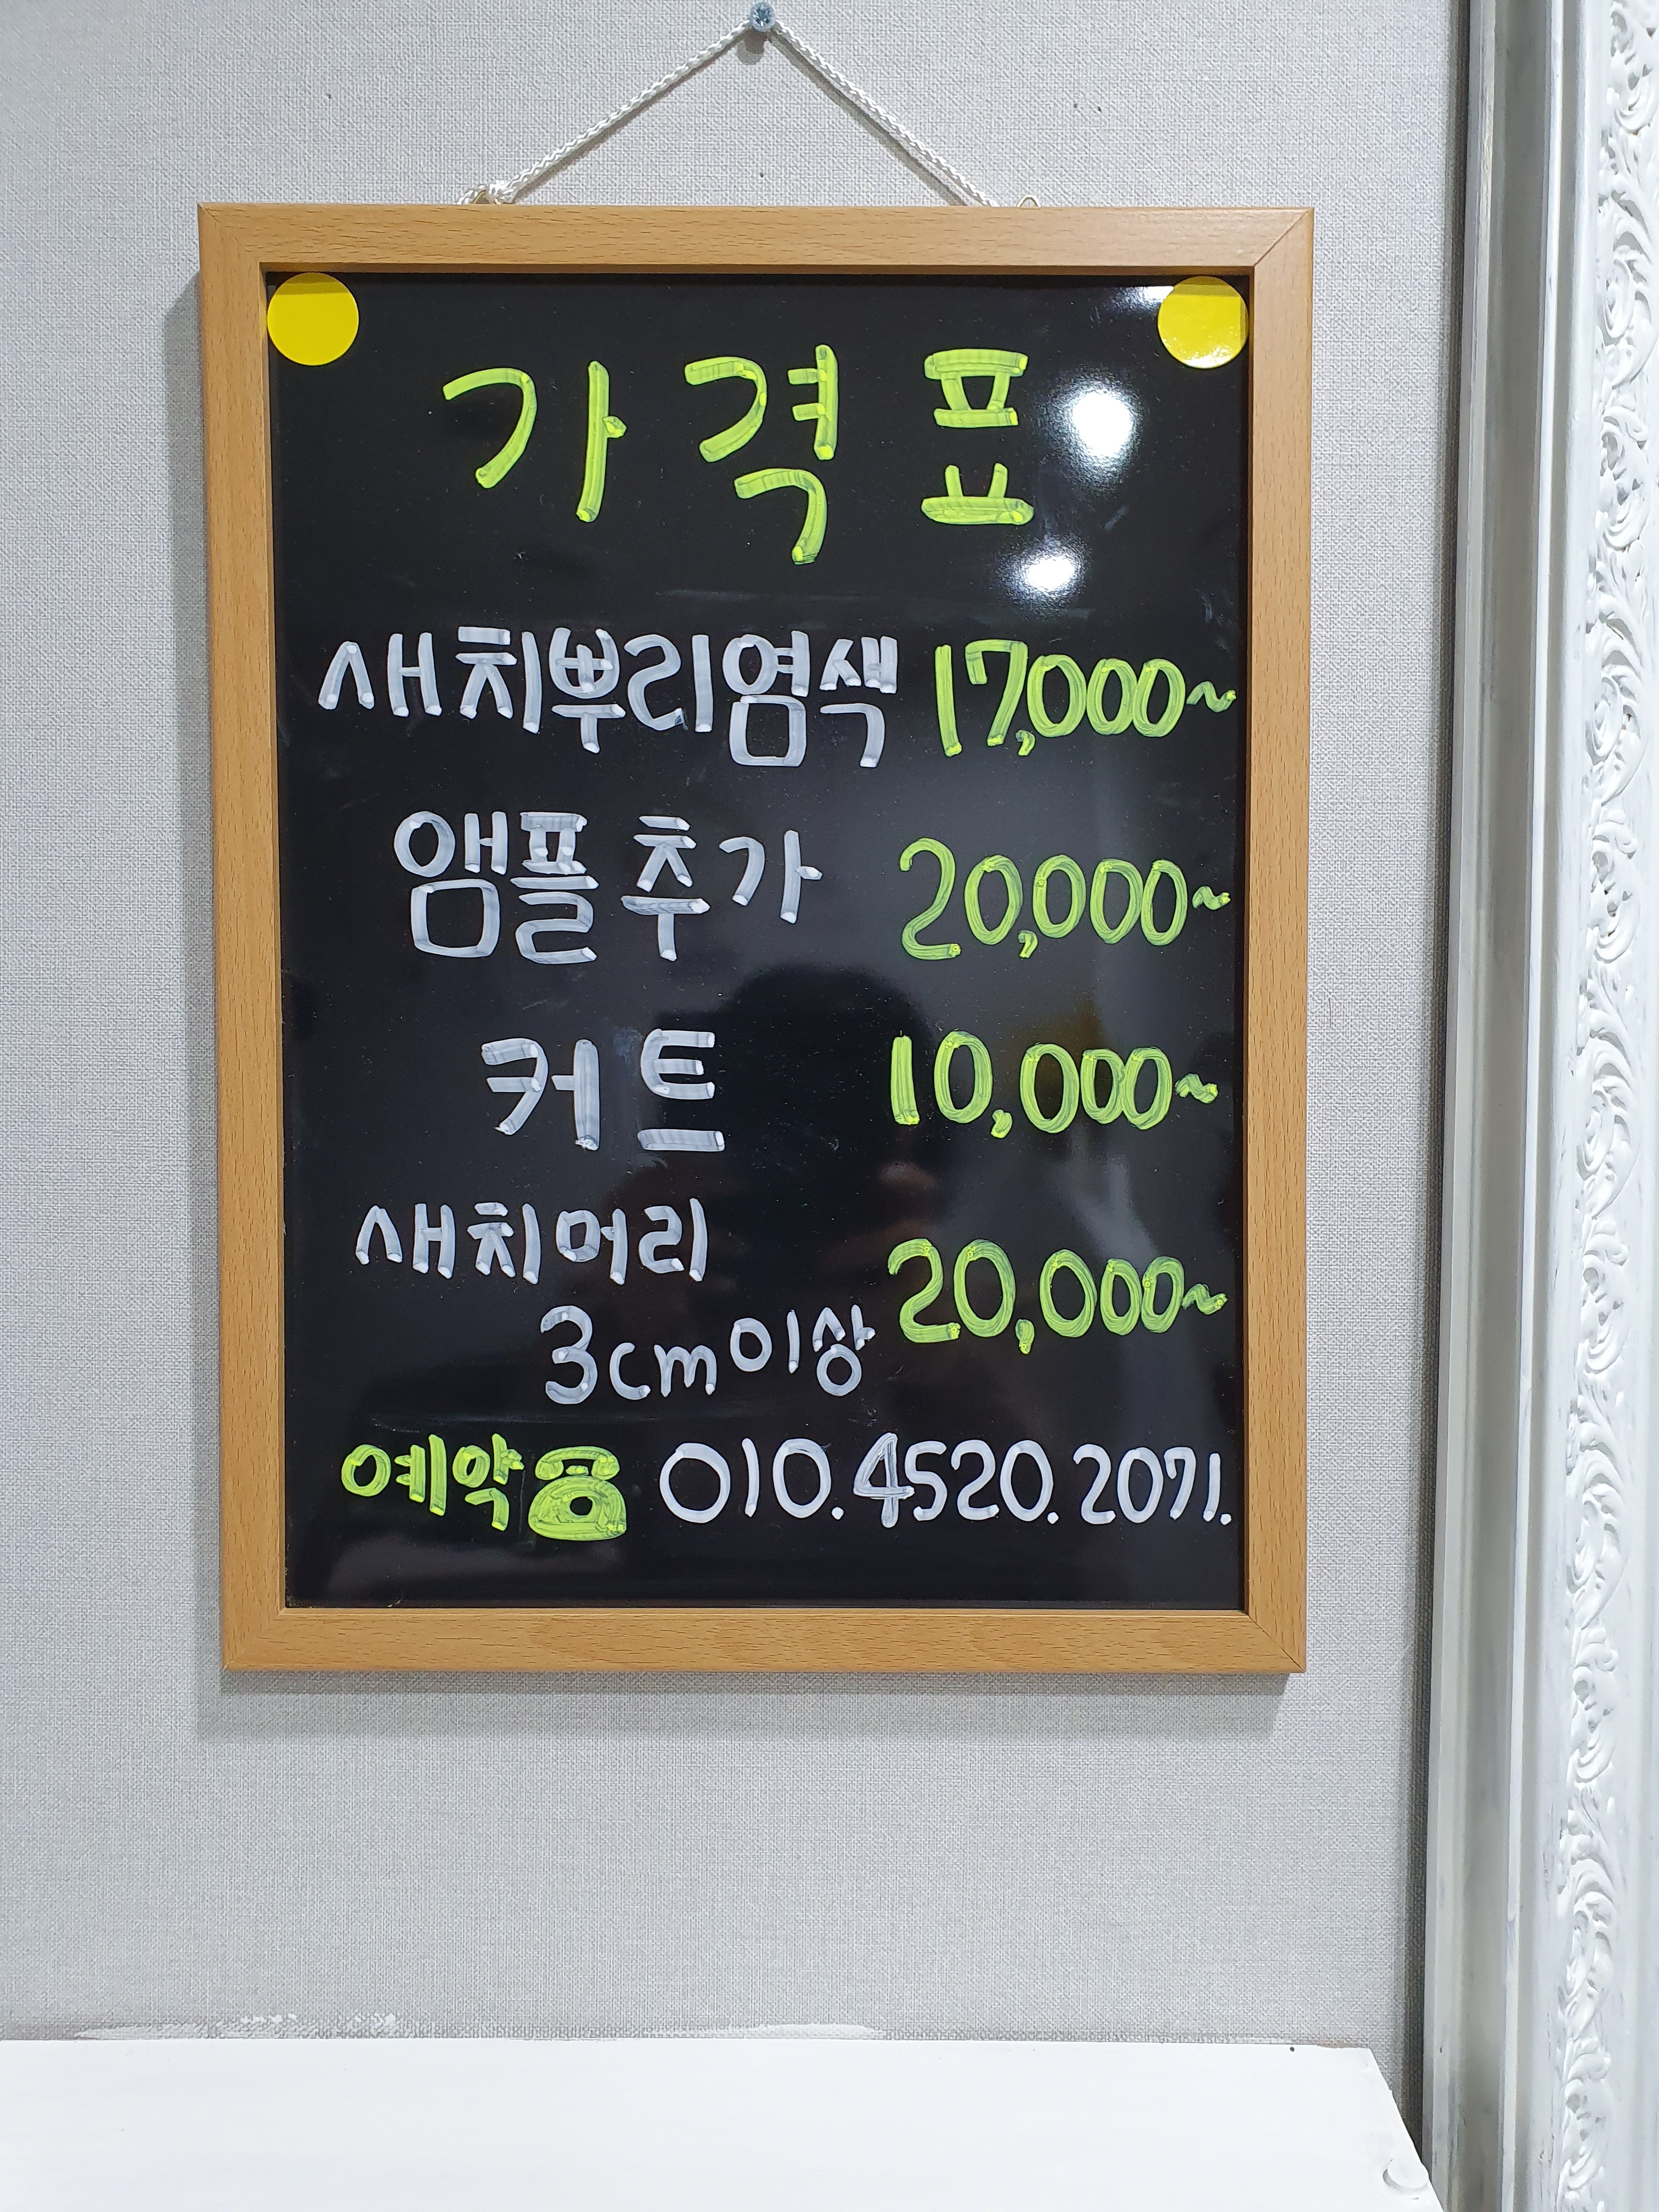 가격표
새치뿌리염색 17,000~
앰플추가 20,000~
커트 10,000~
새치머리
3cm이상 20,000~
예약☎ 010.4520.2071.